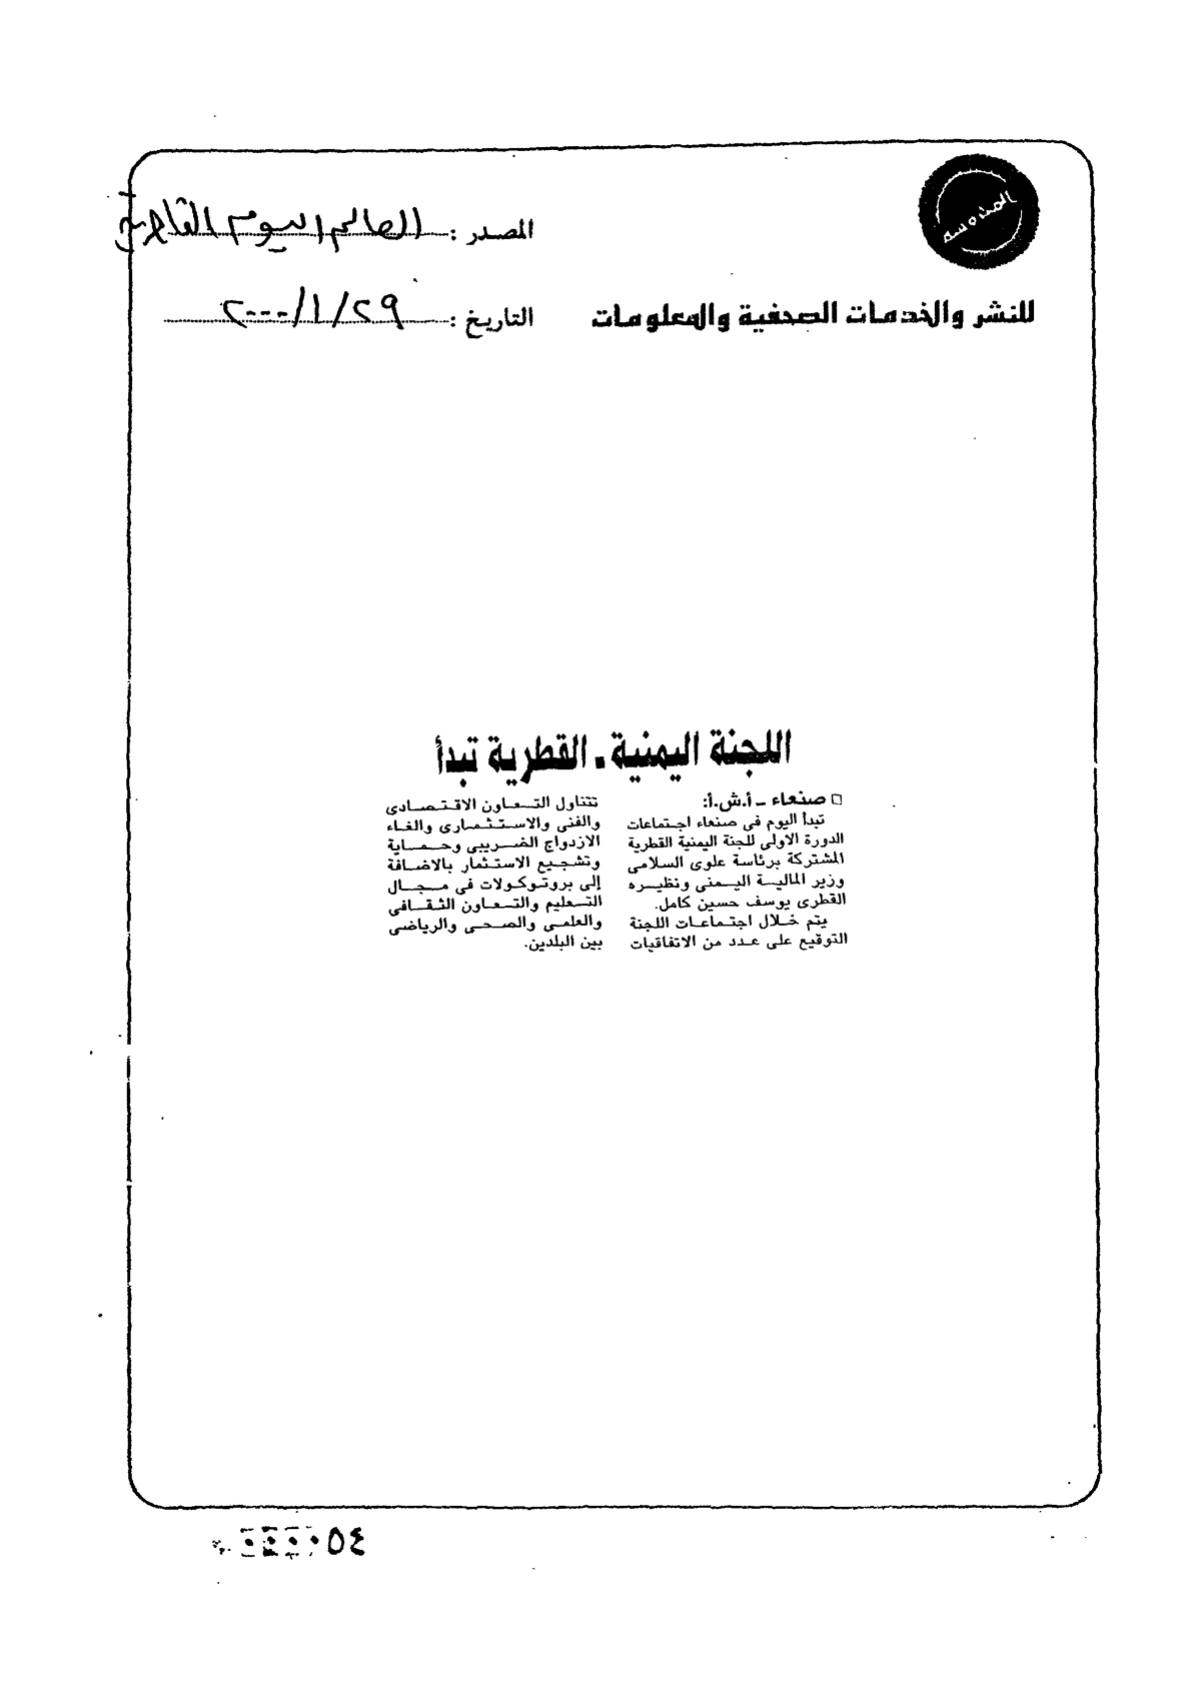 المصدر : العالم اليوم القاهرية
للنشر والخدمات الصحفية والمعلومات
التاريخ : ٢٩/ ١/ ٢٠٠٠
اللجنة اليمنية ـ القطرية تبدأ
□ صنعاء ـ أ.ش.أ:
تبدأ اليوم فى صنعاء اجتماعات
الدورة الاولى للجنة اليمنية القطرية
المشتركة برئاسة علوى السلامى
وزير المالية اليمنى ونظيره
القطرى يوسف حسين كامل.
يتم خلال اجتماعات اللجنة
التوقيع على عدد من الاتفاقيات
تتناول التعاون الاقتصادى
والفنى والاستثمارى والغاء
الازدواج الضريبى وحماية
وتشجيع الاستثمار بالاضافة
إلى بروتوكولات فى مجال
التعليم والتعاون الثقافى
والعلمى والصحى والرياضى
بين البلدين.